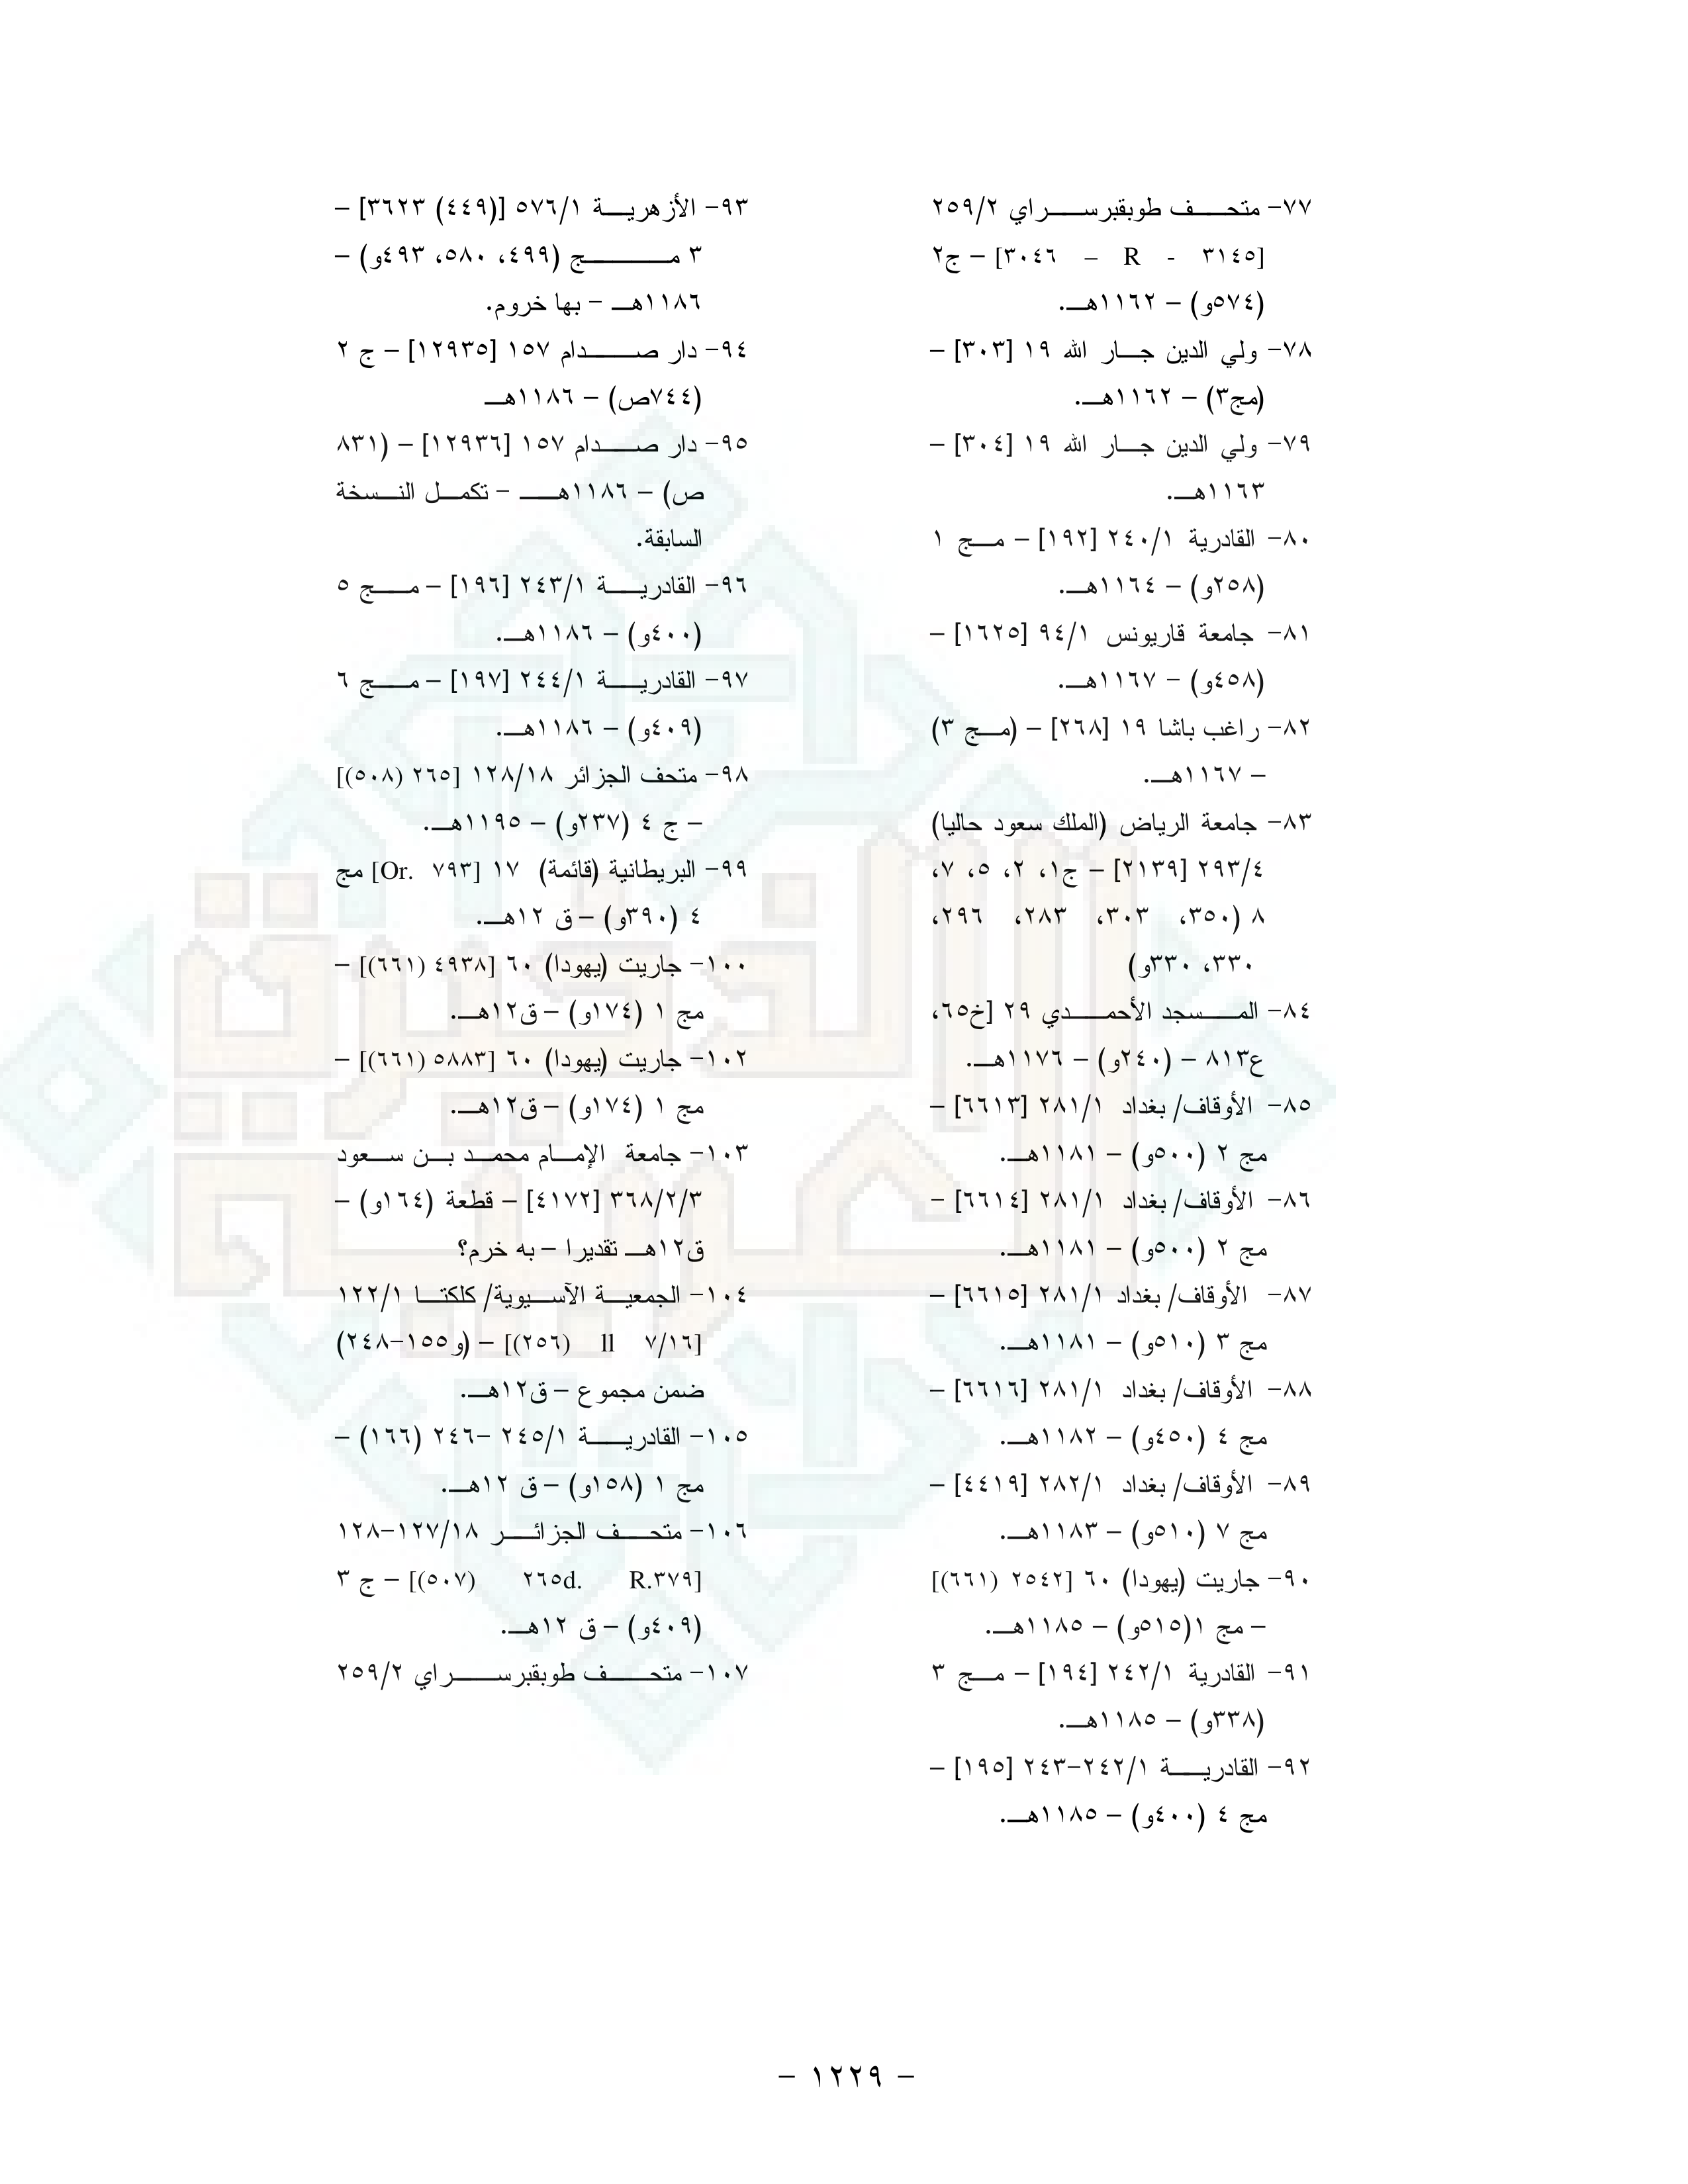 ٧٧- متحف طوبقبرسراي ٢٥٩/٢
[٣١٤٥ - R – ٣٠٤٦] – ج٢
(٥٧٤و) – ١١٦٢هـ.
٧٨- ولي الدين جار الله ١٩ [٣٠٣] –
(مج٣) – ١١٦٢هـ.
٧٩- ولي الدين جار الله ١٩ [٣٠٤] –
١١٦٣هـ.
٨٠- القادرية ٢٤٠/١ [١٩٢] – مج ١
(٢٥٨و) – ١١٦٤هـ.
٨١- جامعة قاريونس ٩٤/١ [١٦٢٥] –
(٤٥٨و) – ١١٦٧هـ.
٨٢- راغب باشا ١٩ [٢٦٨] – (مج ٣)
– ١١٦٧هـ.
٨٣- جامعة الرياض (الملك سعود حاليا)
٢٩٣/٤ [٢١٣٩] – ج١، ٢، ٥، ٧،
٨ (٣٥٠، ٣٠٣، ٢٨٣، ٢٩٦،
٣٣٠، ٣٣٠و)
٨٤- المسجد الأحمدي ٢٩ [خ٦٥،
ع٨١٣ – (٢٤٠و) – ١١٧٦هـ.
٨٥- الأوقاف/ بغداد ٢٨١/١ [٦٦١٣] –
مج ٢ (٥٠٠و) – ١١٨١هـ.
٨٦- الأوقاف/ بغداد ٢٨١/١ [٦٦١٤] –
مج ٢ (٥٠٠و) – ١١٨١هـ.
٨٧- الأوقاف/ بغداد ٢٨١/١ [٦٦١٥] –
مج ٣ (٥١٠و) – ١١٨١هـ.
٨٨- الأوقاف/ بغداد ٢٨١/١ [٦٦١٦] –
مج ٤ (٤٥٠و) – ١١٨٢هـ.
٨٩- الأوقاف/ بغداد ٢٨٢/١ [٤٤١٩] –
مج ٧ (٥١٠و) – ١١٨٣هـ.
٩٠- جاريت (يهودا) ٦٠ [٢٥٤٢ (٦٦١)]
– مج ١(٥١٥و) – ١١٨٥هـ.
٩١- القادرية ٢٤٢/١ [١٩٤] – مج ٣
(٣٣٨و) – ١١٨٥هـ.
٩٢- القادرية ٢٤٢/١-٢٤٣ [١٩٥] –
مج ٤ (٤٠٠و) – ١١٨٥هـ.
٩٣- الأزهرية ٥٧٦/١ [(٤٤٩) ٣٦٢٣] –
٣ مج (٤٩٩، ٥٨٠، ٤٩٣و) –
١١٨٦هـ – بها خروم.
٩٤- دار صدام ١٥٧ [١٢٩٣٥] – ج ٢
(٧٤٤ص) – ١١٨٦هـ
٩٥- دار صدام ١٥٧ [١٢٩٣٦] – (٨٣١
ص) – ١١٨٦هـ – تكمل النسخة
السابقة.
٩٦- القادرية ٢٤٣/١ [١٩٦] – مج ٥
(٤٠٠و) – ١١٨٦هـ.
٩٧- القادرية ٢٤٤/١ [١٩٧] – مج ٦
(٤٠٩و) – ١١٨٦هـ.
٩٨- متحف الجزائر ١٢٨/١٨ [٢٦٥ (٥٠٨)]
– ج ٤ (٢٣٧و) – ١١٩٥هـ.
٩٩- البريطانية (قائمة) ١٧ [Or. ٧٩٣] مج
٤ (٣٩٠و) – ق ١٢هـ.
١٠٠- جاريت (يهودا) ٦٠ [٤٩٣٨ (٦٦١)] –
مج ١ (١٧٤و) – ق١٢هـ.
١٠٢- جاريت (يهودا) ٦٠ [٥٨٨٣ (٦٦١)] –
مج ١ (١٧٤و) – ق١٢هـ.
١٠٣- جامعة الإمام محمد بن سعود
٣٦٨/٢/٣ [٤١٧٢] – قطعة (١٦٤و) –
ق١٢هـ تقديرا – به خرم؟
١٠٤- الجمعية الآسيوية/ كلكتا ١٢٢/١
[٧/١٦ ll (٢٥٦)] – (و١٥٥-٢٤٨)
ضمن مجموع – ق١٢هـ.
١٠٥- القادرية ٢٤٥/١ -٢٤٦ (١٦٦) –
مج ١ (١٥٨و) – ق ١٢هـ.
١٠٦- متحف الجزائر ١٢٧/١٨-١٢٨
[٢٦٥d. R.٣٧٩ (٥٠٧)] – ج ٣
(٤٠٩و) – ق ١٢هـ.
١٠٧- متحف طوبقبرسراي ٢٥٩/٢
– ١٢٢٩ –
الذخيرة
العربية